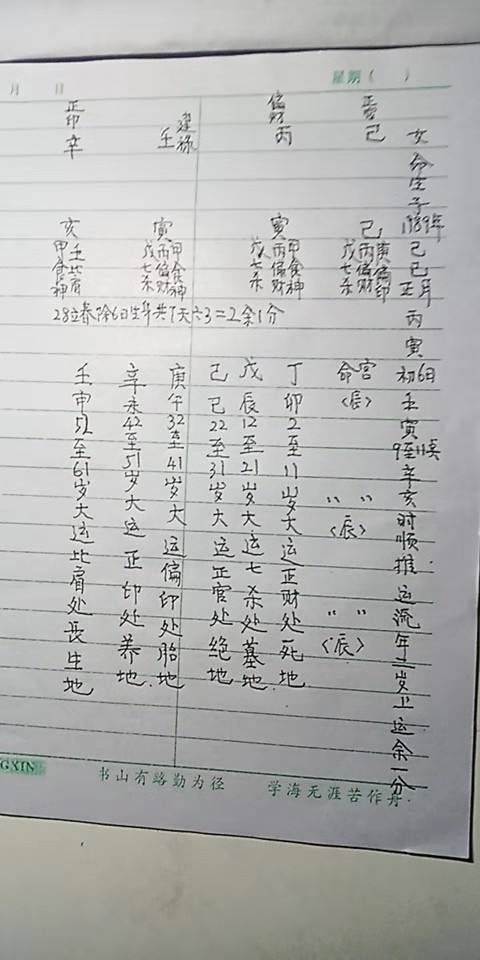 月 日 星期( )
女命生于1989年己巳正月丙寅初6日壬寅9至11点辛亥时顺推运流年二岁上运余一分
己
偏财 丙
建禄 壬
正印 辛
巳 庚偏印 丙偏财 戊七杀
寅 甲食神 丙偏财 戊七杀
寅 甲食神 丙偏财 戊七杀
亥 壬比肩 甲食神
28立春除6日生年共7天六3=2余1分
命宫〈辰〉
〃 〃〈辰〉
〃 〃〈辰〉
丁卯2至11岁大运正财处死地
戊辰12至21岁大运七杀处墓地
己巳22至31岁大运正官处绝地
庚午32至41岁大运偏印处胎地
辛未42至51岁大运正印处养地
壬申52至61岁大运比肩处长生地
GXIN 书山有路勤为径 学海无涯苦作舟